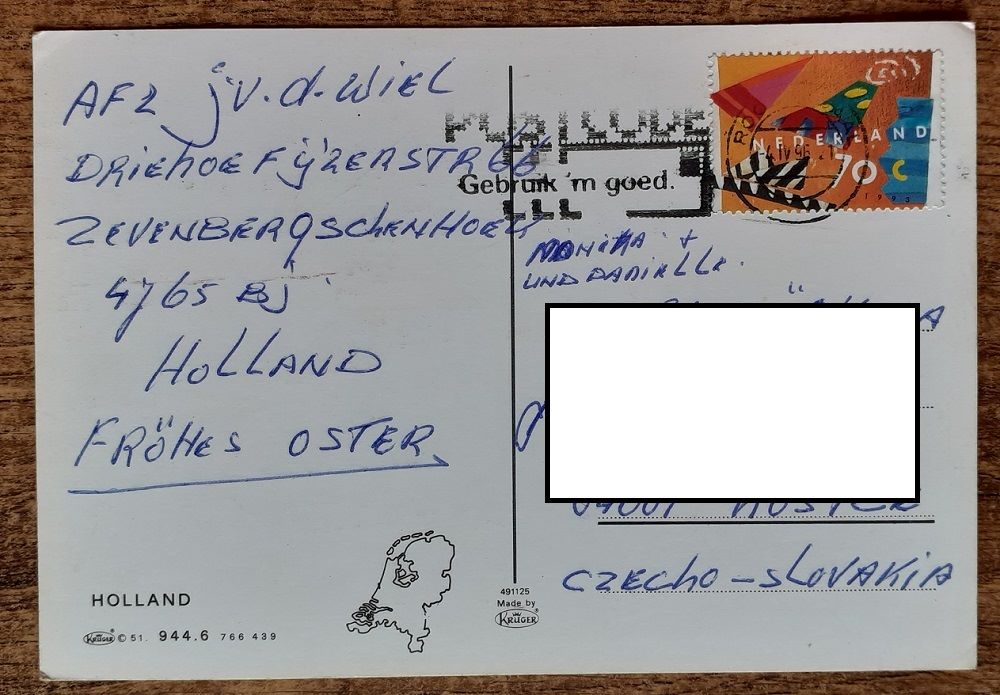 AFZ JV.d.WIEL
DRIEHOEFIJZERSTR 66
ZEVENBERGSCHENHOEK
4765 BJ
HOLLAND
FRÖHES OSTER
HOLLAND
KRÜGER © 51. 944.6 766 439
Gebruik 'm goed.
NEDERLAND
70 c
1993
MONIKA +
UND DANIELLE.
CZECHO-SLOVAKIA
491125
Made by
KRÜGER